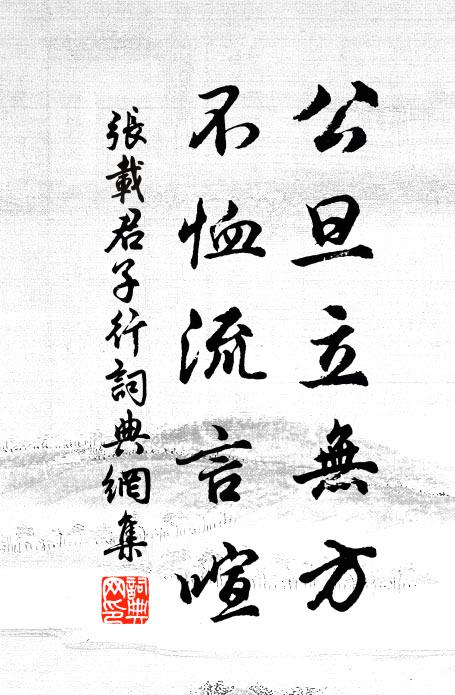 公旦立無方
不恤流言喧
張載君子行詞典網集
詞典网印